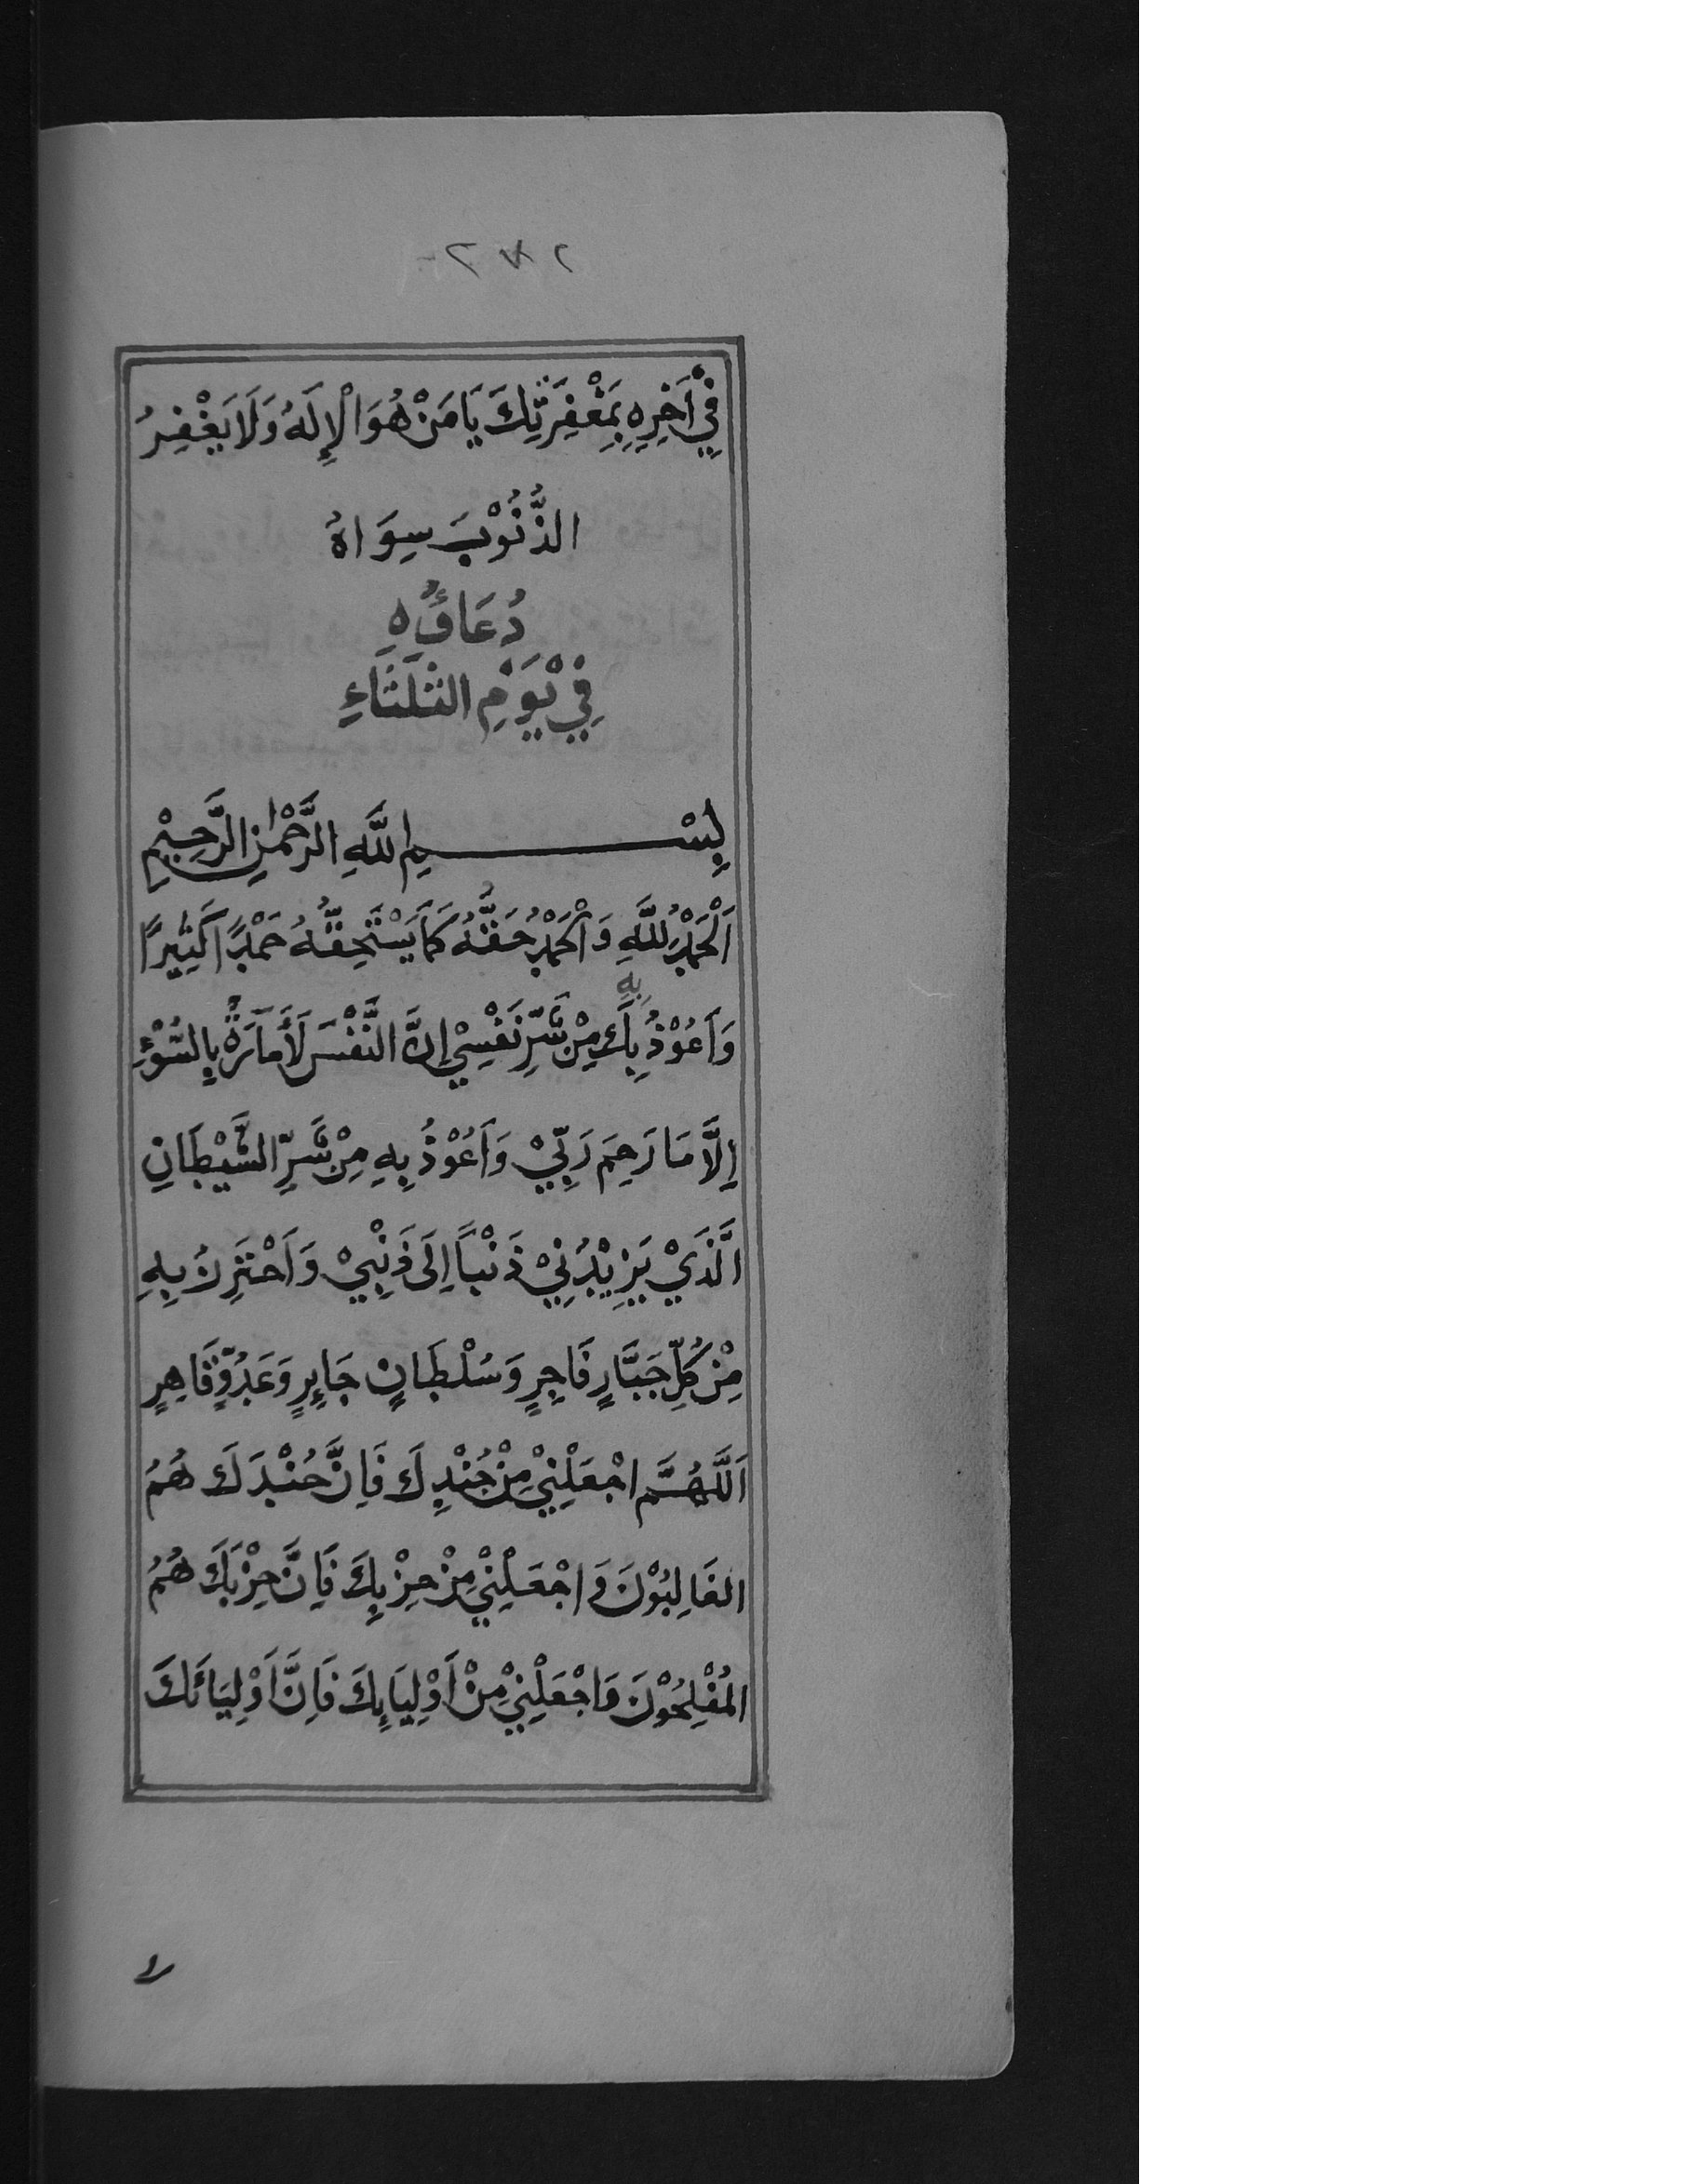 فِيْ اٰخِرِهِ بِمَغْفِرَتِكَ يَا مَنْ هُوَ الْإِلَهُ وَلَا يَغْفِرُ
الذُّنُوْبَ سِوَاهُ
دُعَاؤُهُ
فِيْ يَوْمِ الثَّلَثَاءِ
بِسْمِ اللَّهِ الرَّحْمٰنِ الرَّحِيْمِ
اَلْحَمْدُ لِلَّهِ وَالْحَمْدُ حَقُّهُ كَمَا يَسْتَحِقُّهُ حَمْدًا كَثِيْرًا
بِهِ
وَاَعُوْذُ بِكَ مِنْ شَرِّ نَفْسِيْ اِنَّ النَّفْسَ لَأَمَّارَةٌ بِالسُّوْءِ
اِلَّا مَا رَحِمَ رَبِّيْ وَاَعُوْذُ بِهِ مِنْ شَرِّ الشَّيْطَانِ
الَّذِيْ يَزِيْدُنِيْ ذَنْبًا اِلَى ذَنْبِيْ وَاَحْتَرِزُ بِهِ
مِنْ كُلِّ جَبَّارٍ فَاجِرٍ وَسُلْطَانٍ جَايِرٍ وَعَدُوٍّ قَاهِرٍ
اَللَّهُمَّ اجْعَلْنِيْ مِنْ جُنْدِكَ فَاِنَّ جُنْدَكَ هُمُ
الغَالِبُوْنَ وَاجْعَلْنِيْ مِنْ حِزْبِكَ فَاِنَّ حِزْبَكَ هُمُ
المُفْلِحُوْنَ وَاجْعَلْنِيْ مِنْ اَوْلِيَايِكَ فَاِنَّ اَوْلِيَائَكَ